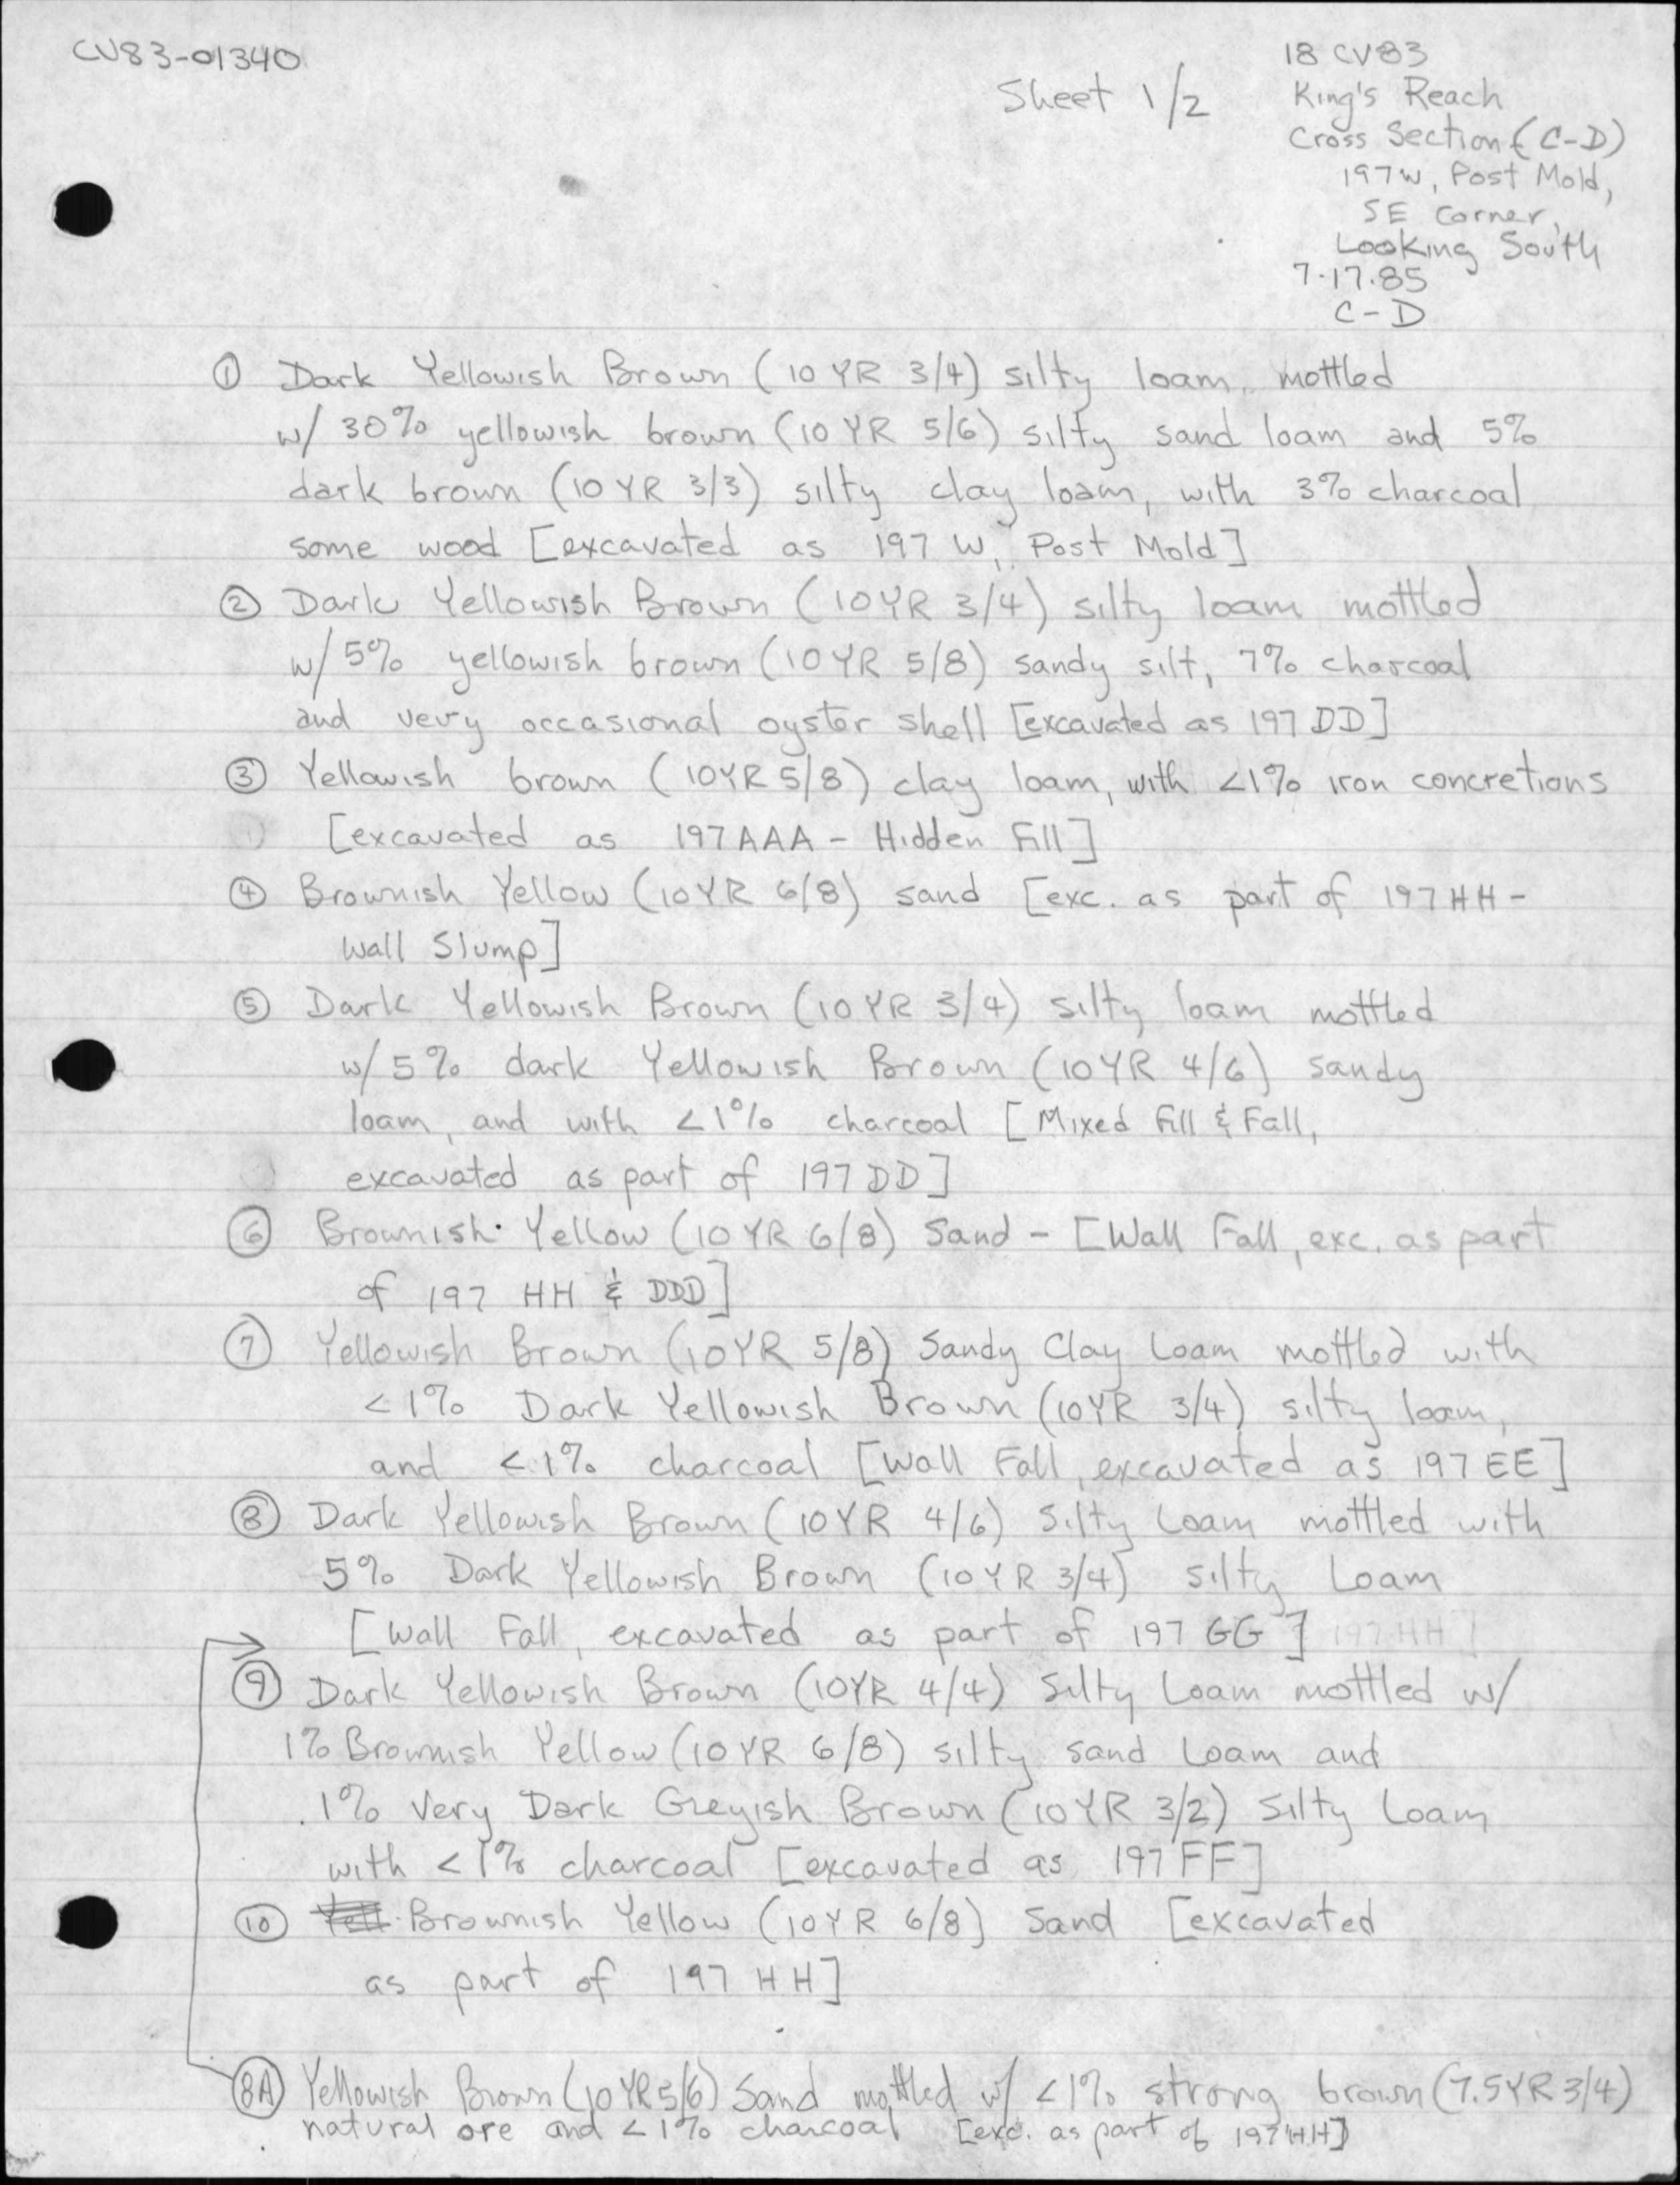 CV83-01340
Sheet 1/2
18 CV83
King's Reach
Cross Section (C-D)
197W, Post Mold,
SE Corner,
Looking South
7-17-85
C-D
① Dark Yellowish Brown (10 YR 3/4) silty loam, mottled
w/ 30% yellowish brown (10 YR 5/6) silty sand loam and 5%
dark brown (10 YR 3/3) silty clay loam, with 3% charcoal
some wood [excavated as 197 W, Post Mold]
② Dark Yellowish Brown (10YR 3/4) silty loam mottled
w/ 5% yellowish brown (10 YR 5/8) sandy silt, 7% charcoal
and very occasional oyster shell [excavated as 197 DD]
③ Yellowish brown (10YR 5/8) clay loam, with <1% iron concretions
[excavated as 197AAA - Hidden Fill]
④ Brownish Yellow (10YR 6/8) sand [exc. as part of 197HH-
Wall Slump]
⑤ Dark Yellowish Brown (10 YR 3/4) silty loam mottled
w/ 5% dark Yellowish Brown (10YR 4/6) sandy
loam, and with <1% charcoal [Mixed Fill & Fall,
excavated as part of 197 DD]
⑥ Brownish Yellow (10 YR 6/8) Sand - [Wall Fall, exc. as part
of 197 HH & DDD]
⑦ Yellowish Brown (10YR 5/8) Sandy Clay Loam mottled with
<1% Dark Yellowish Brown (10YR 3/4) silty loam,
and <1% charcoal [Wall Fall, excavated as 197 EE]
⑧ Dark Yellowish Brown (10YR 4/6) Silty Loam mottled with
5% Dark Yellowish Brown (10YR 3/4) silty Loam
[Wall Fall, excavated as part of 197 GG] 197 HH]
⑨ Dark Yellowish Brown (10YR 4/4) Silty Loam mottled w/
1% Brownish Yellow (10YR 6/8) silty sand Loam and
1% Very Dark Greyish Brown (10YR 3/2) Silty Loam
with <1% charcoal [excavated as 197 FF]
⑩ Yell. Brownish Yellow (10YR 6/8) Sand [excavated
as part of 197 HH]
8A Yellowish Brown (10YR5/6) Sand mottled w/ <1% strong brown (7.5YR 3/4)
natural ore and <1% charcoal [exc. as part of 197HH]